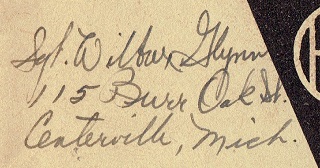 Sgt. Wilbur Glynn
115 Burr Oak St.
Centerville, Mich.